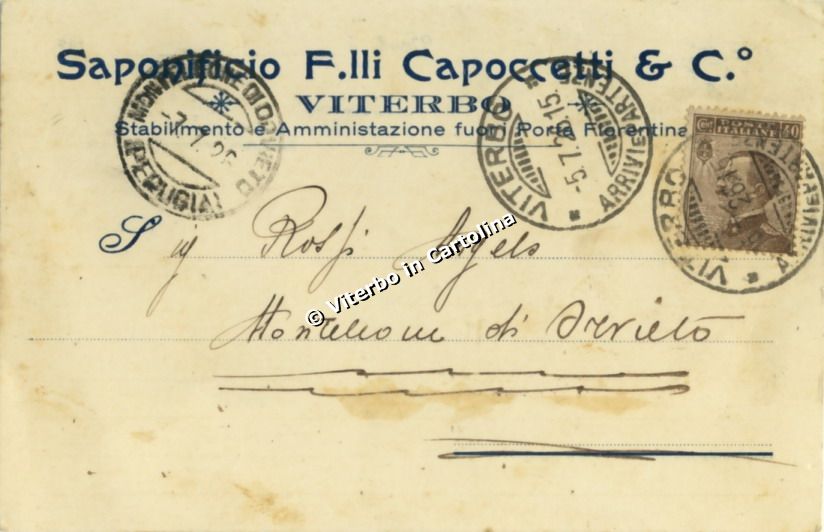 Saponificio F.lli Capoccetti & C.°
VITERBO
Stabilimento e Amministazione fuori Porta Fiorentina
VITERBO
ARRIVI E PARTENZE
-5.7.26.15
MONTELEONE DI ORVIETO
(PERUGIA)
-7.7.26
POSTE ITALIANE
Cent. 40
VITERBO
ARRIVI E PARTENZE
Sig Rossi
© Viterbo in Cartolina
Monteleone di Orvieto